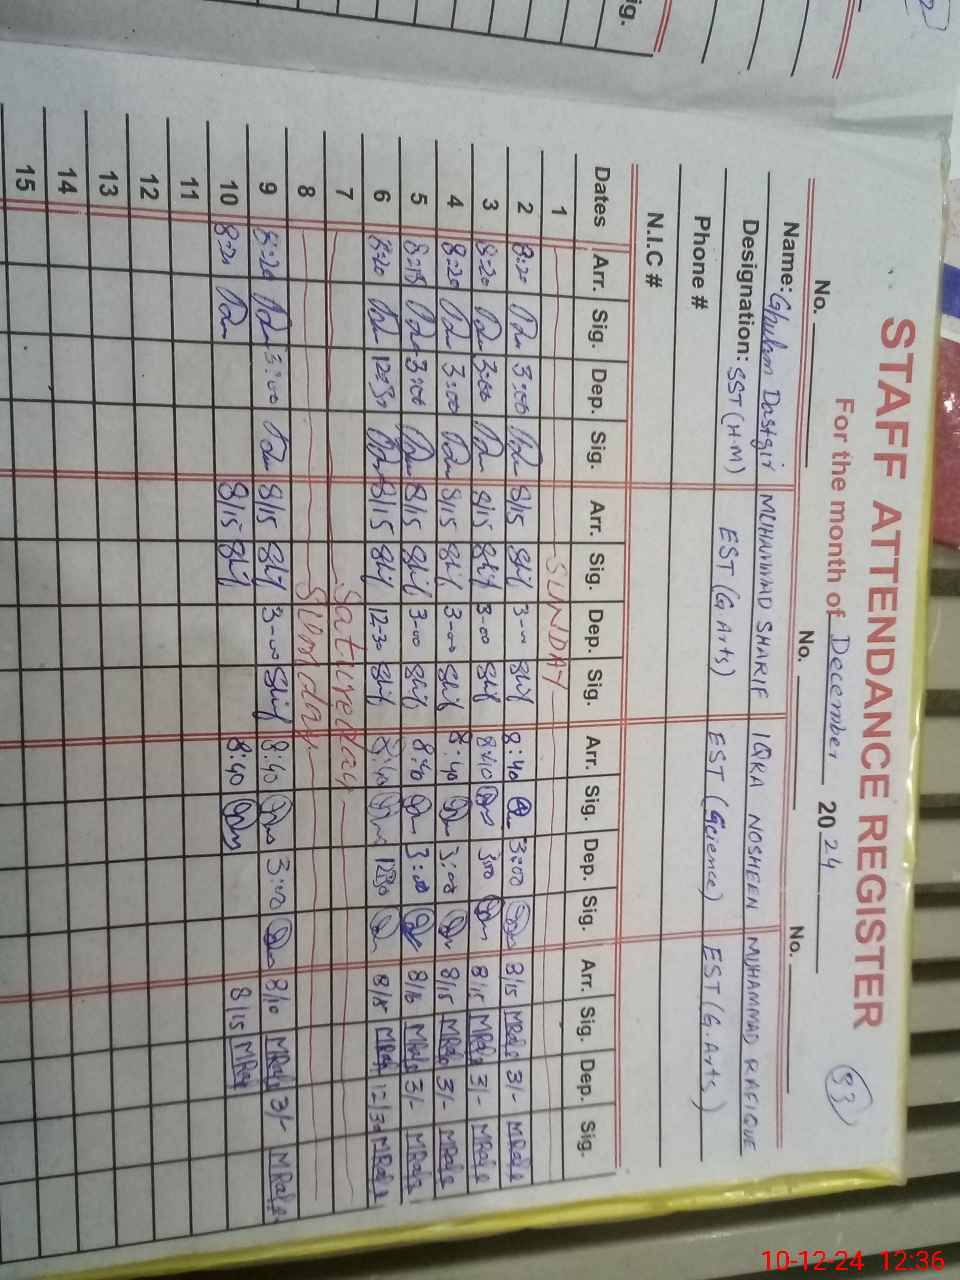 ig.
STAFF ATTENDANCE REGISTER
33
For the month of December 2024
No. No. No.
Name: Ghulam Dastgir MUHAMMAD SHARIF IQRA NOSHEEN MUHAMMAD RAFIQUE
Designation: SST (H.M) EST (G.Arts) EST (Science) EST (G.Arts)
Phone #
N.I.C #
Dates Arr. Sig. Dep. Sig. Arr. Sig. Dep. Sig. Arr. Sig. Dep. Sig. Arr. Sig. Dep. Sig.
1 SUNDAY
2 8:20 3:00 8/15 3-00 8:40 3:00 8/15 MRafiq 3/- MRafiq
3 8:20 3:00 8/15 3-00 8:40 3:00 8/15 MRafiq 3/- MRafiq
4 8:20 3:00 8/15 3-00 8:40 3:00 8/15 MRafiq 3/- MRafiq
5 8:18 3:00 8/15 3-00 8:40 3:00 MRafiq 3/- MRafiq
6 8:20 12:30 8/15 12-30 8:40 12:30 MRafiq 12/30 MRafiq
7 Satureday
8 Sunday
9 8:20 3:00 8/15 3-00 8:40 3:00 8/10 MRafiq 3/- MRafiq
10 8:20 8/15 8:40 8/15 MRafiq
11
12
13
14
15
10-12-24 12:36